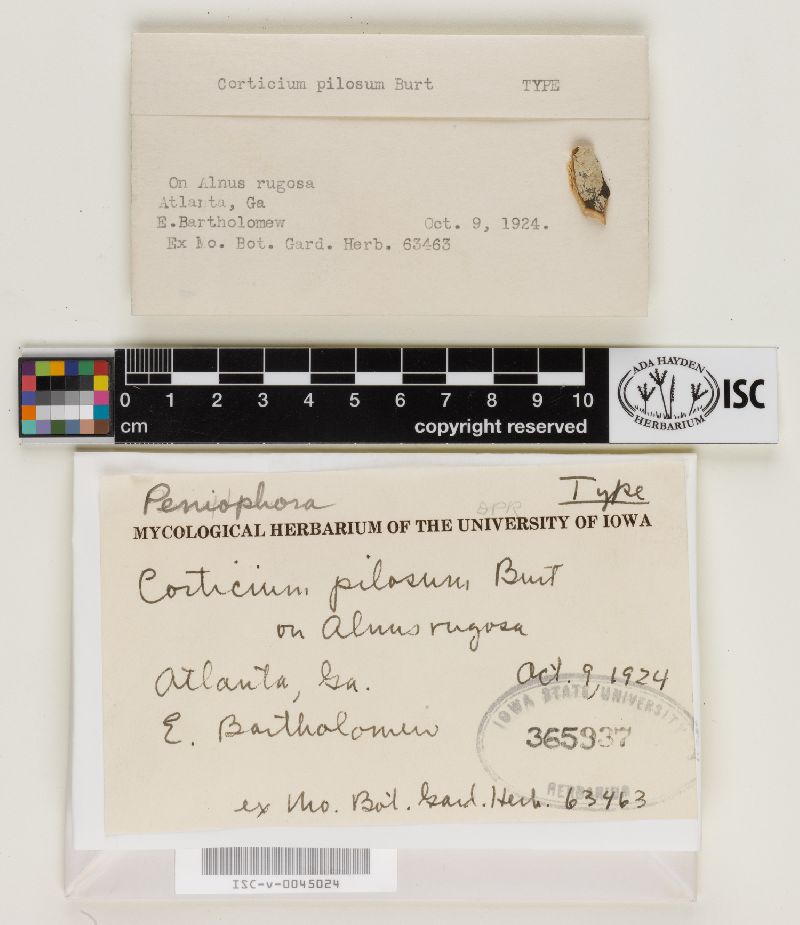 Corticium pilosum Burt TYPE
On Alnus rugosa
Atlanta, Ga
E.Bartholomew Oct. 9, 1924.
Ex Mo. Bot. Gard. Herb. 63463
0 1 2 3 4 5 6 7 8 9 10
cm copyright reserved
ADA HAYDEN
HERBARIUM
ISC
Peniophora Type
DPR
MYCOLOGICAL HERBARIUM OF THE UNIVERSITY OF IOWA
Corticium pilosum Burt
on Alnus rugosa
Atlanta, Ga. Oct. 9, 1924
E. Bartholomew
IOWA STATE UNIVERSITY
365937
HERBARIUM
ex Mo. Bot. Gard. Herb. 63463
ISC-v-0045024